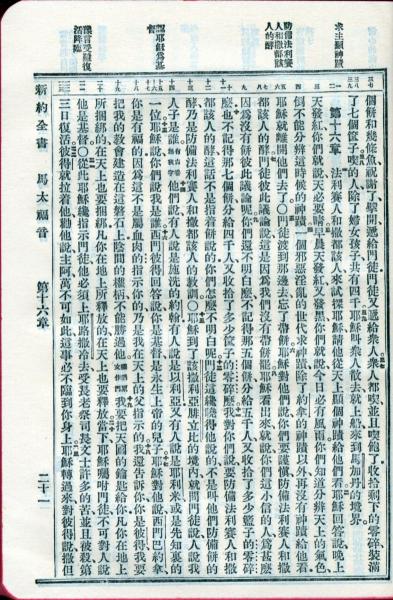 求主顯神蹟
防備法利賽
人和撒都該
人的酵
認耶穌爲基
督
個餅和幾條魚祝謝了擘開遞給門徒門徒又遞給衆人衆人都喫並且喫飽了收拾剩下的零碎裝滿
了七個筐子喫的人除了婦女孩子共有四千耶穌叫衆人散去就上船來到馬加丹的境界
第十六章 法利賽人和撒都該人來試探耶穌請他從天上顯個神蹟給他們看耶穌回答說晚上
天發紅你們就說天必要晴早晨天發紅又發黑你們就說今日必有風雨你們知道分辨天上的氣色
倒不能分辨這時候的神蹟一個邪惡淫亂的世代求神蹟除了約拿的神蹟以外再沒有神蹟給他看
耶穌就離開他們去了○門徒渡到那邊去忘了帶餅耶穌對他們說你們要謹愼防備法利賽人和撒
都該人的酵門徒彼此議論說這是因爲我們沒有帶餅罷耶穌看出來就說你們這小信的人爲甚麼
因爲沒有餅彼此議論呢你們還不明白麼不記得那五個餅分給五千人又收拾了多少籃子的零碎
麼也不記得那七個餅分給四千人又收拾了多少筐子的零碎麼我對你們說要防備法利賽人和撒
都該人的酵這話不是指着餅說的你們怎麼不明白呢門徒這纔曉得他說的不是叫他們防備餅的
酵乃是防備法利賽人和撒都該人的教訓○耶穌到了該撒利亞腓立比的境內就問門徒說人說我
人子是誰有古卷無我字他們說有人說是施洗的約翰有人說是以利亞又有人說是耶利米或是先知裏的
一位耶穌說你們說我是誰西門彼得回答說你是基督是永生上帝的兒子耶穌對他說西門巴約拿
你是有福的因爲這不是屬血肉的指示你的乃是我在天上的父指示的我還告訴你你是彼得我要
把我的教會建造在這磐石上陰間的權柄不能勝過他權柄原文作門我要把天國的鑰匙給你凡你在地上
所捆綁的在天上也要捆綁凡你在地上所釋放的在天上也要釋放當下耶穌囑咐門徒不可對人說
他是基督○從此耶穌纔指示門徒他必須上耶路撒冷去受長老祭司長文士許多的苦並且被殺第
三日復活彼得就拉着他勸他說主阿萬不可如此這事必不臨到你身上耶穌轉過來對彼得說撒但
新約全書 馬太福音 第十六章 二十一